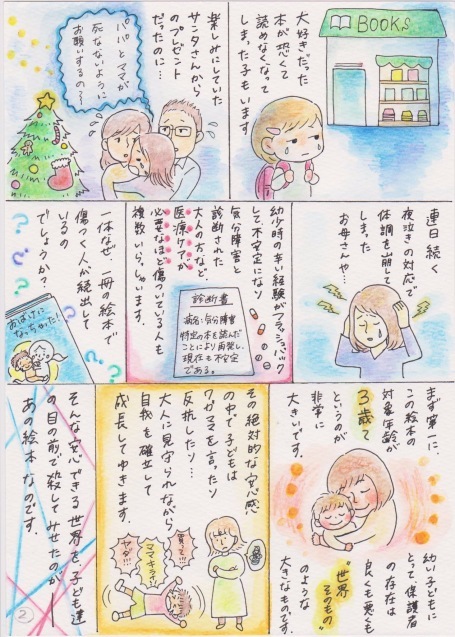 BOOKS
大好きだった
本が恐くて
読めなくなって
しまった子もいます
楽しみにしていた
サンタさんから
のプレゼント
だったのに…
パパとママが
死なないように
お願いするの…
連日続く
夜泣きの対応で
体調を崩して
しまった
お母さんや…
幼少時の辛い経験がフラッシュバック
して不安定になり
気分障害と
診断された
大人の方など、
医療ケアが
必要なほど傷ついている人も
複数いらっしゃいます。
診断書
病名:気分障害
特定の本を読んだ
ことにより再発し、
現在も不安定
である。
一体なぜ、一冊の絵本で
傷つく人が続出して
いるの
でしょうか?
おばけに
なっちゃった!
まず第一に、
この絵本の
対象年齢が
3歳て
というのが
非常に
大きいです。
幼い子どもに
とって、保護者
の存在は
良くも悪くも
“世界
そのもの”
のような
大きなものです。
その絶対的な安心感
の中で子どもは
ワガママを言ったり
反抗したり…
大人に見守られながら
自我を確立して
成長してゆきます。
買って!!
ママキライ!
ヤダ!!!
そんな安心できる世界を、子ども達
の目の前で殺してみせたのが
あの絵本なのです。
2